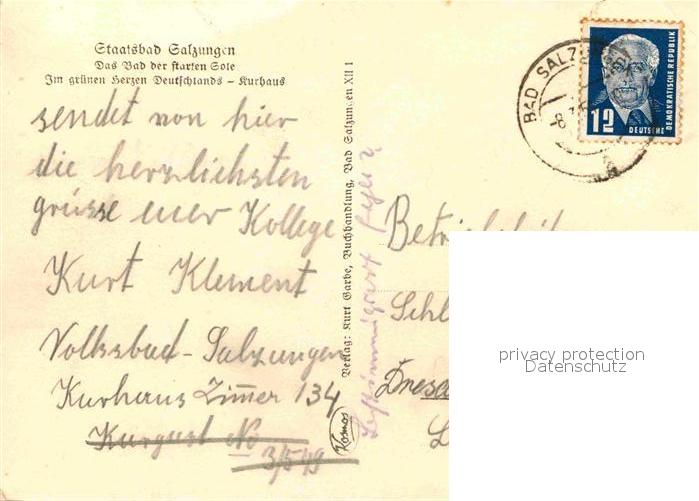 Staatsbad Salzungen
Das Bad der starken Sole
Im grünen Herzen Deutschlands – Kurhaus
sendet von hier
die herzlichsten
grüsse euer Kollege
Kurt Klement
Volksbad-Salzungen
Kurhaus Zimmer 134
Kurgast No
3/549
Verlag: Kurt Garbe, Buchhandlung, Bad Salzungen XII 1
Kosmos
BAD SALZ
-8.
a
12
DEUTSCHE
DEMOKRATISCHE REPUBLIK
Schl
Dresd
privacy protection
Datenschutz